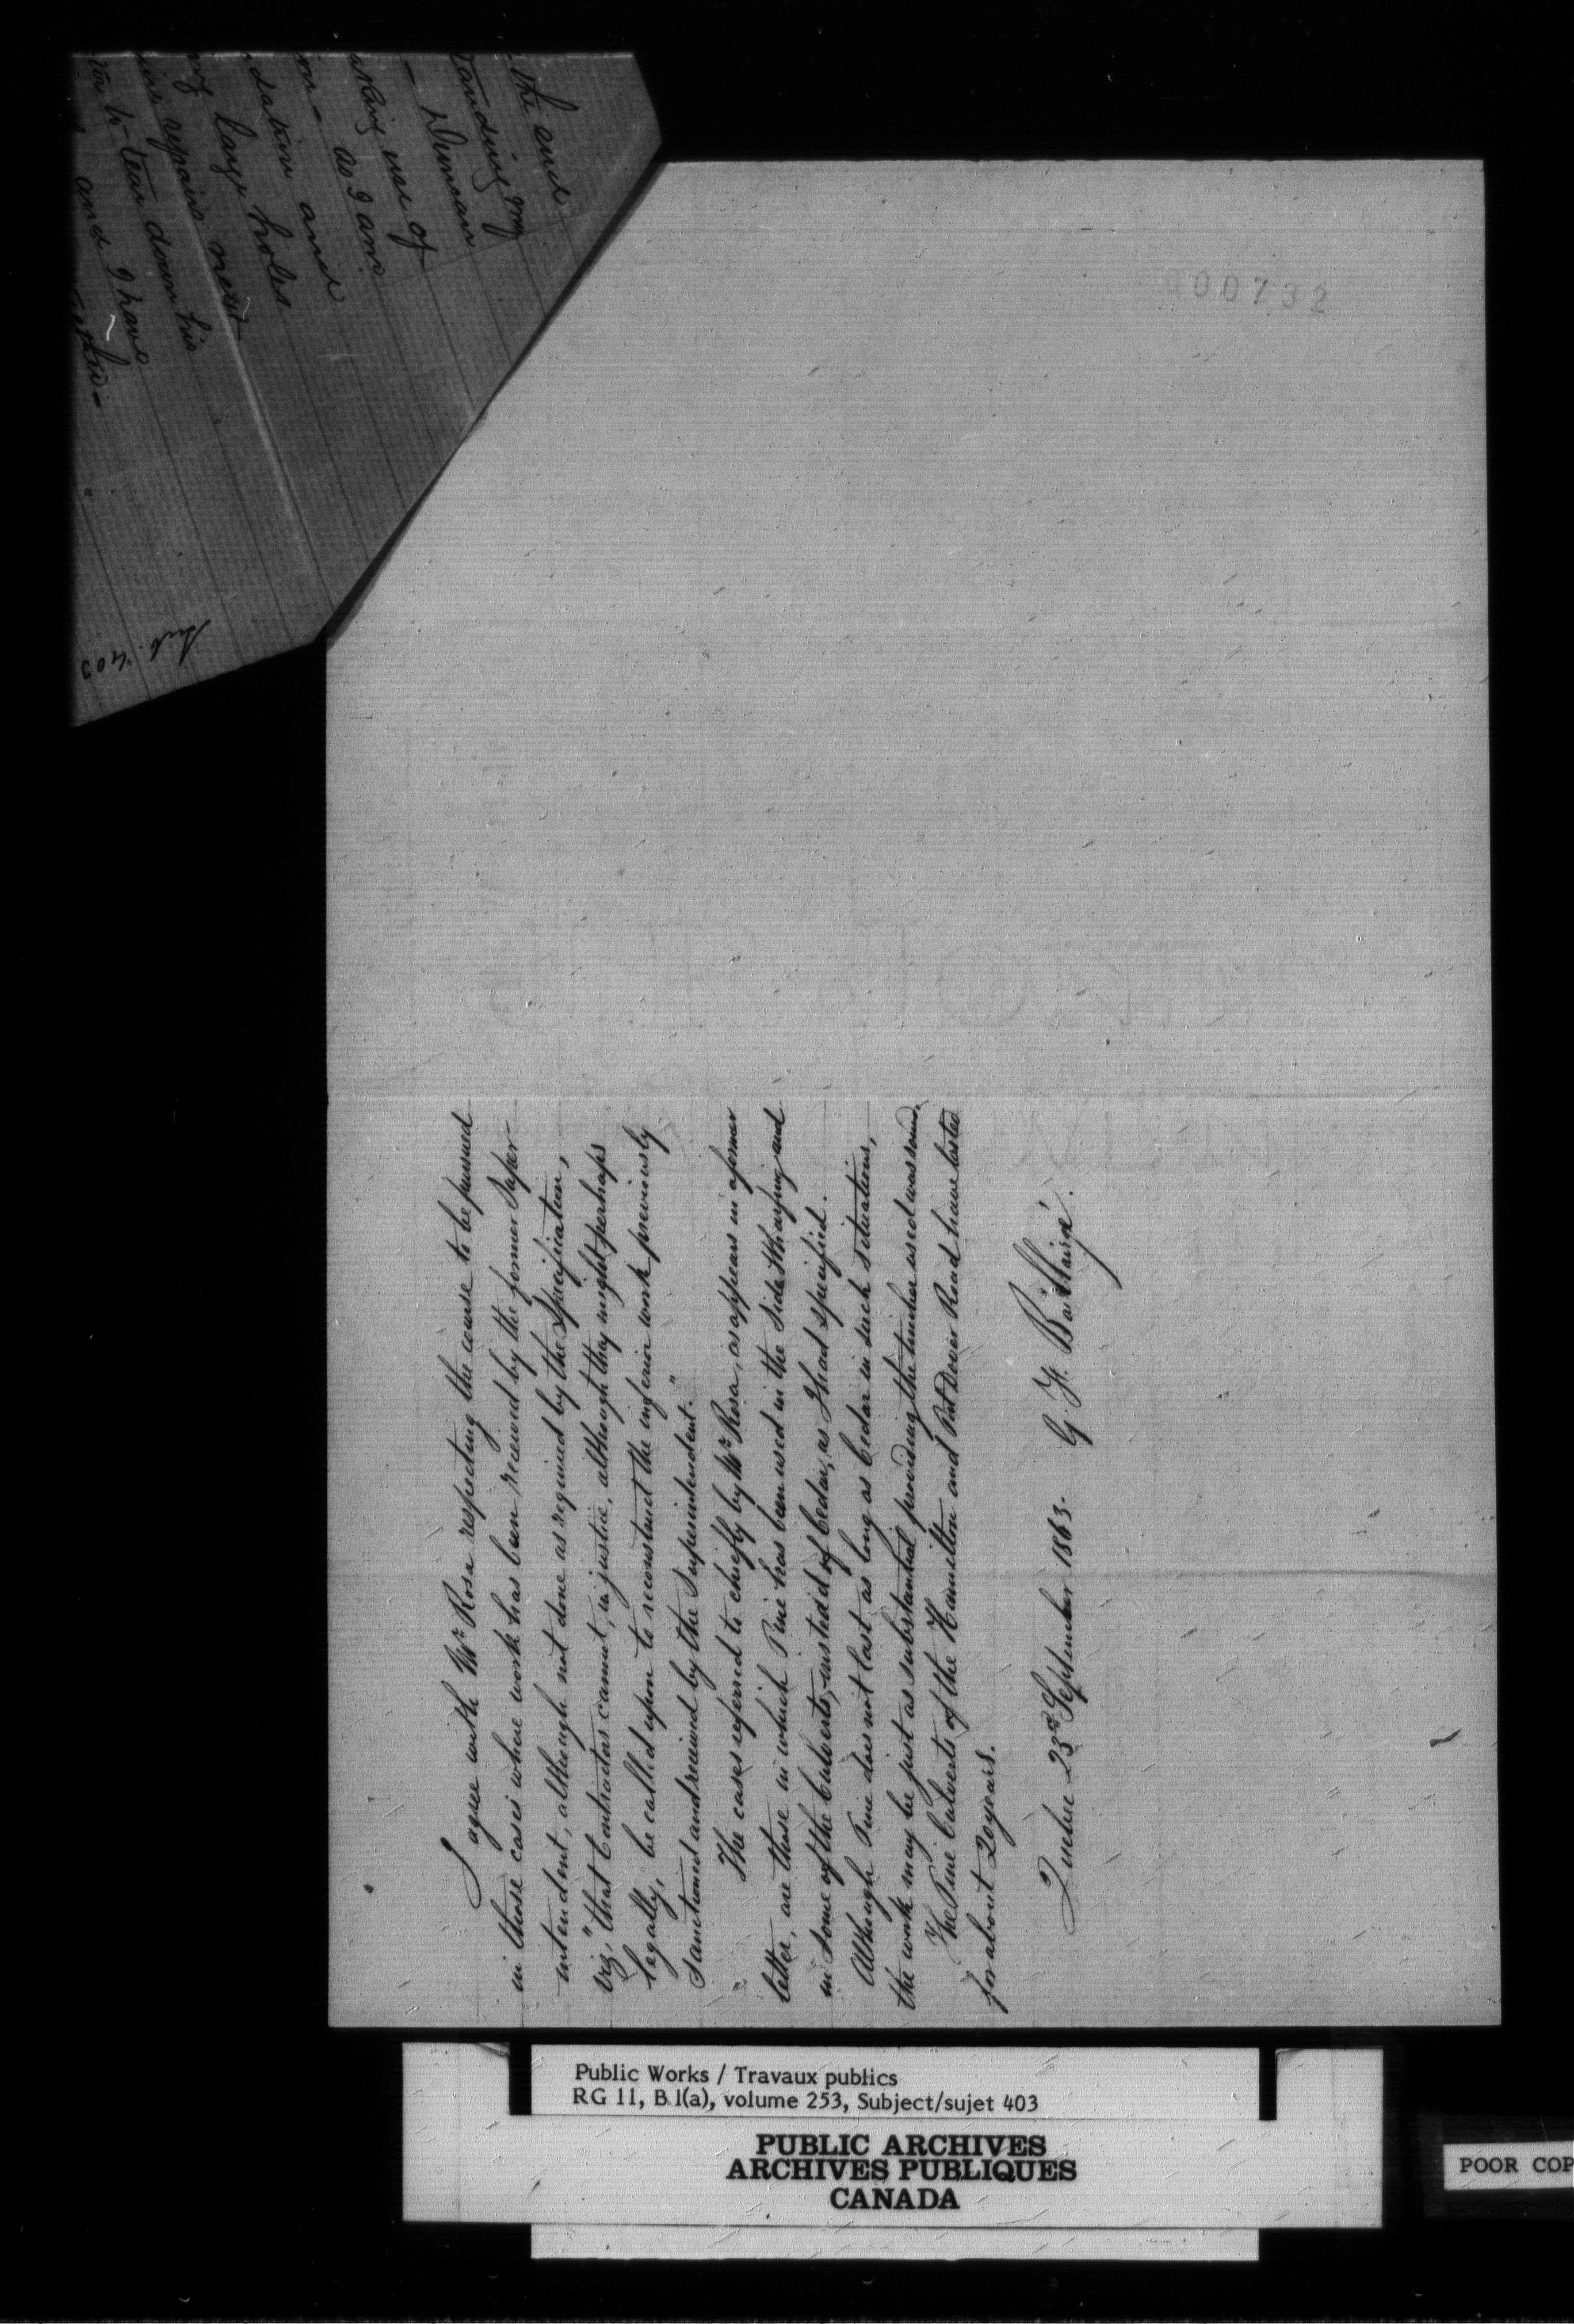 the and
anding my
- Duncan
aking use of
m - as I am
dation and
ng large holes
ins repairs next
to tear down his
and I have
Sub. 403
000732
I agree with Mr Rosa respecting the course to be pursued
in those cases where work has been received by the former Super-
intendent, although not done as required by the Specification,
viz, "that Contractors cannot, in justice, although they might perhaps
legally, be called upon to reconstruct the inferior work previously
sanctioned and received by the Superintendent."
The cases referred to chiefly by Mr Rosa, as appears in a former
letter, are those in which Pine has been used in the Side Wharfing and
in some of the Culverts, instead of Cedar, as I had specified.
Although Pine does not last as long as Cedar in such situations,
the work may be just as substantial providing the timber used was sound.
The Pine Culverts of the Hamilton and Port Dover Road have lasted
for about 20 years.
Quebec 23rd September 1863. G. F. Baillairgé.
Public Works / Travaux publics
RG 11, B 1(a), volume 253, Subject/sujet 403
PUBLIC ARCHIVES
ARCHIVES PUBLIQUES
CANADA
POOR COP